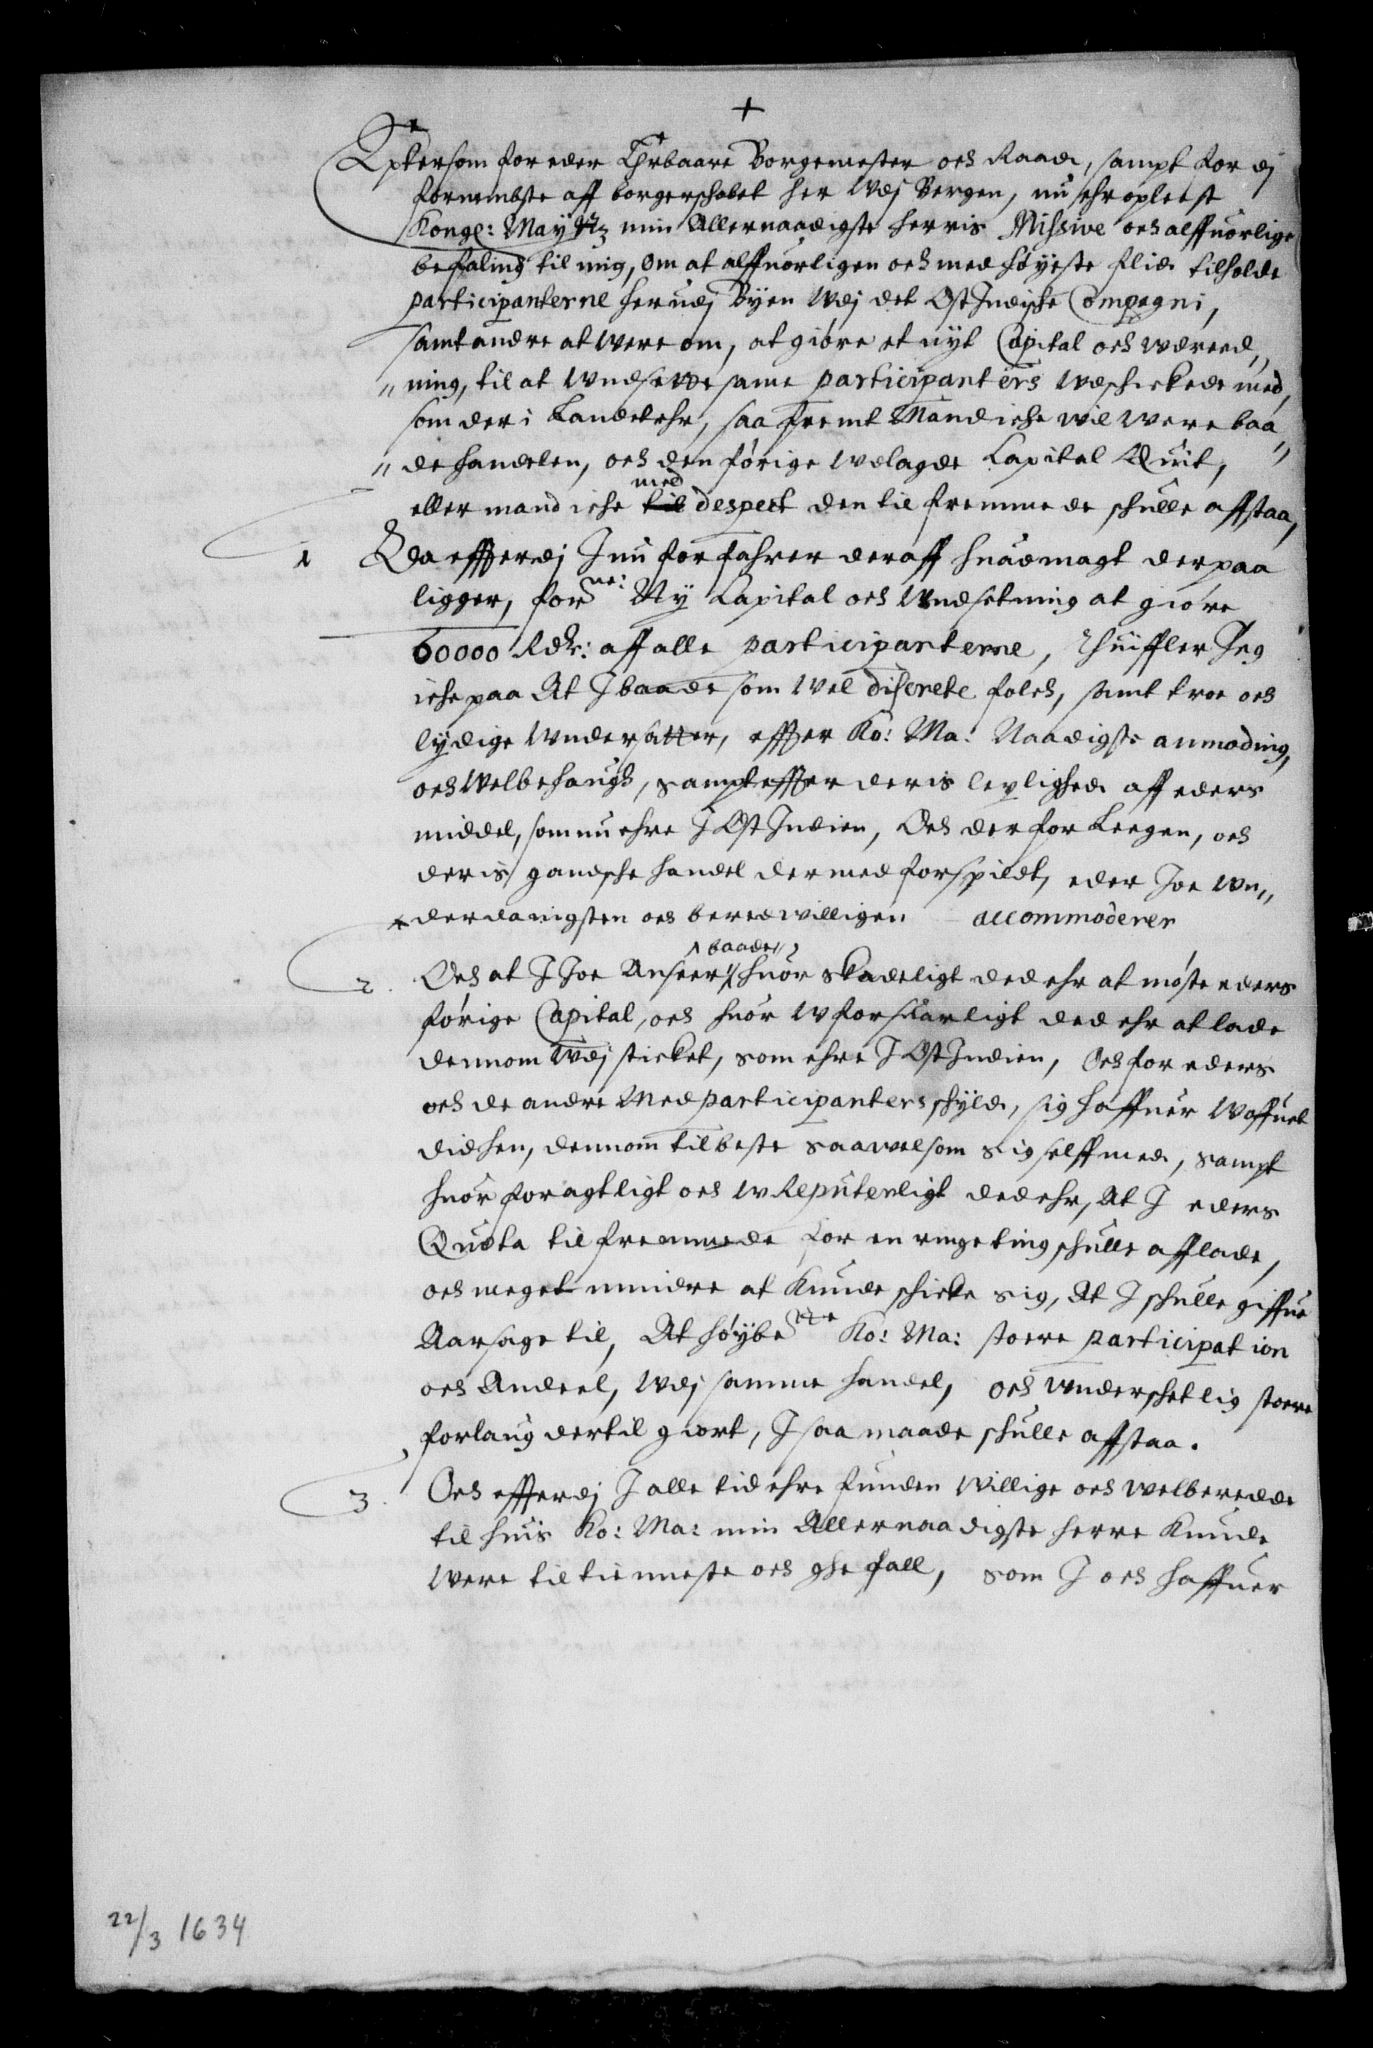 +
Epttersom for eder Ehrbaare Borgemester och Raad, sampt for dj
fornembste aff borgerschabet her Udj Bergen, nu ehr oplæst
Kongl: May:tz min Allernaadigste herris Missive och alffuorlige
befaling til mig, om at alffuorligen och med høyeste flid tilholde
participanterne her udj Byen Udj det Ost Indische Compagni,
samt andre at were om, at giøre et nyt Capital och
ning, til at Undsette same participanters Udschickede med,
som der i Landet ehr, saa fremt Mand iche wil were baa„
„de handelen, och den førige Udlagde Capital Quit,
eller mand iche til med despect den til fremmede schulle affstaa,
1 Da effterdj I nu forfahrer deraff huad magt derpaa
ligger, for:ne: Ny Capital och Undsetning at giøre
60000 Rdr: aff alle participanterne, Thuiffler Jeg
iche paa At I baade som Wel discrete folch, samt troe och
lydige Undersatter, effter Ko: Ma: Naadigste anmoding,
och Welbehaugh, sampt effter deris leylighed aff eders
middel, som nu ehre I Ost Indien, Och derfor Leegen, och
deris gandsche handel dermed forspildt, eder Joe Un„
derdanigsten och beredwilligen accommoderer
2. Och at I Joe Anseer baade huor skadeligt ded ehr at miste eders
førige Capital, och huor Uforsuarligt ded ehr at lade
dennom Udj sticket, som ehre I Ost Indien, Och for eders
och de andre Medparticipanters schyld, sig haffuer Woffuet
didhen, dennom til beste saawelsom sig selff med, sampt
huor foragtligt och UReputerligt ded ehr, At I eders
Quota til fremmede for en ringe ting schulle afflade,
och meget mindre at kunde schicke sig, At I schulle giffue
Aarsage til, At høybe:te Ko: Ma: stoere participation
och Andeel, Udj samme handel, och Underschetlig stoere
forlaug dertil giort, I saa maade schulle affstaa.
3. Och effterdj I alle tid ehre funden Willige och welberedde
til huis Ko: Ma: min Allernaadigste herre kunde
Were til tienneste och gefall, som I och haffuer
22/3 1634